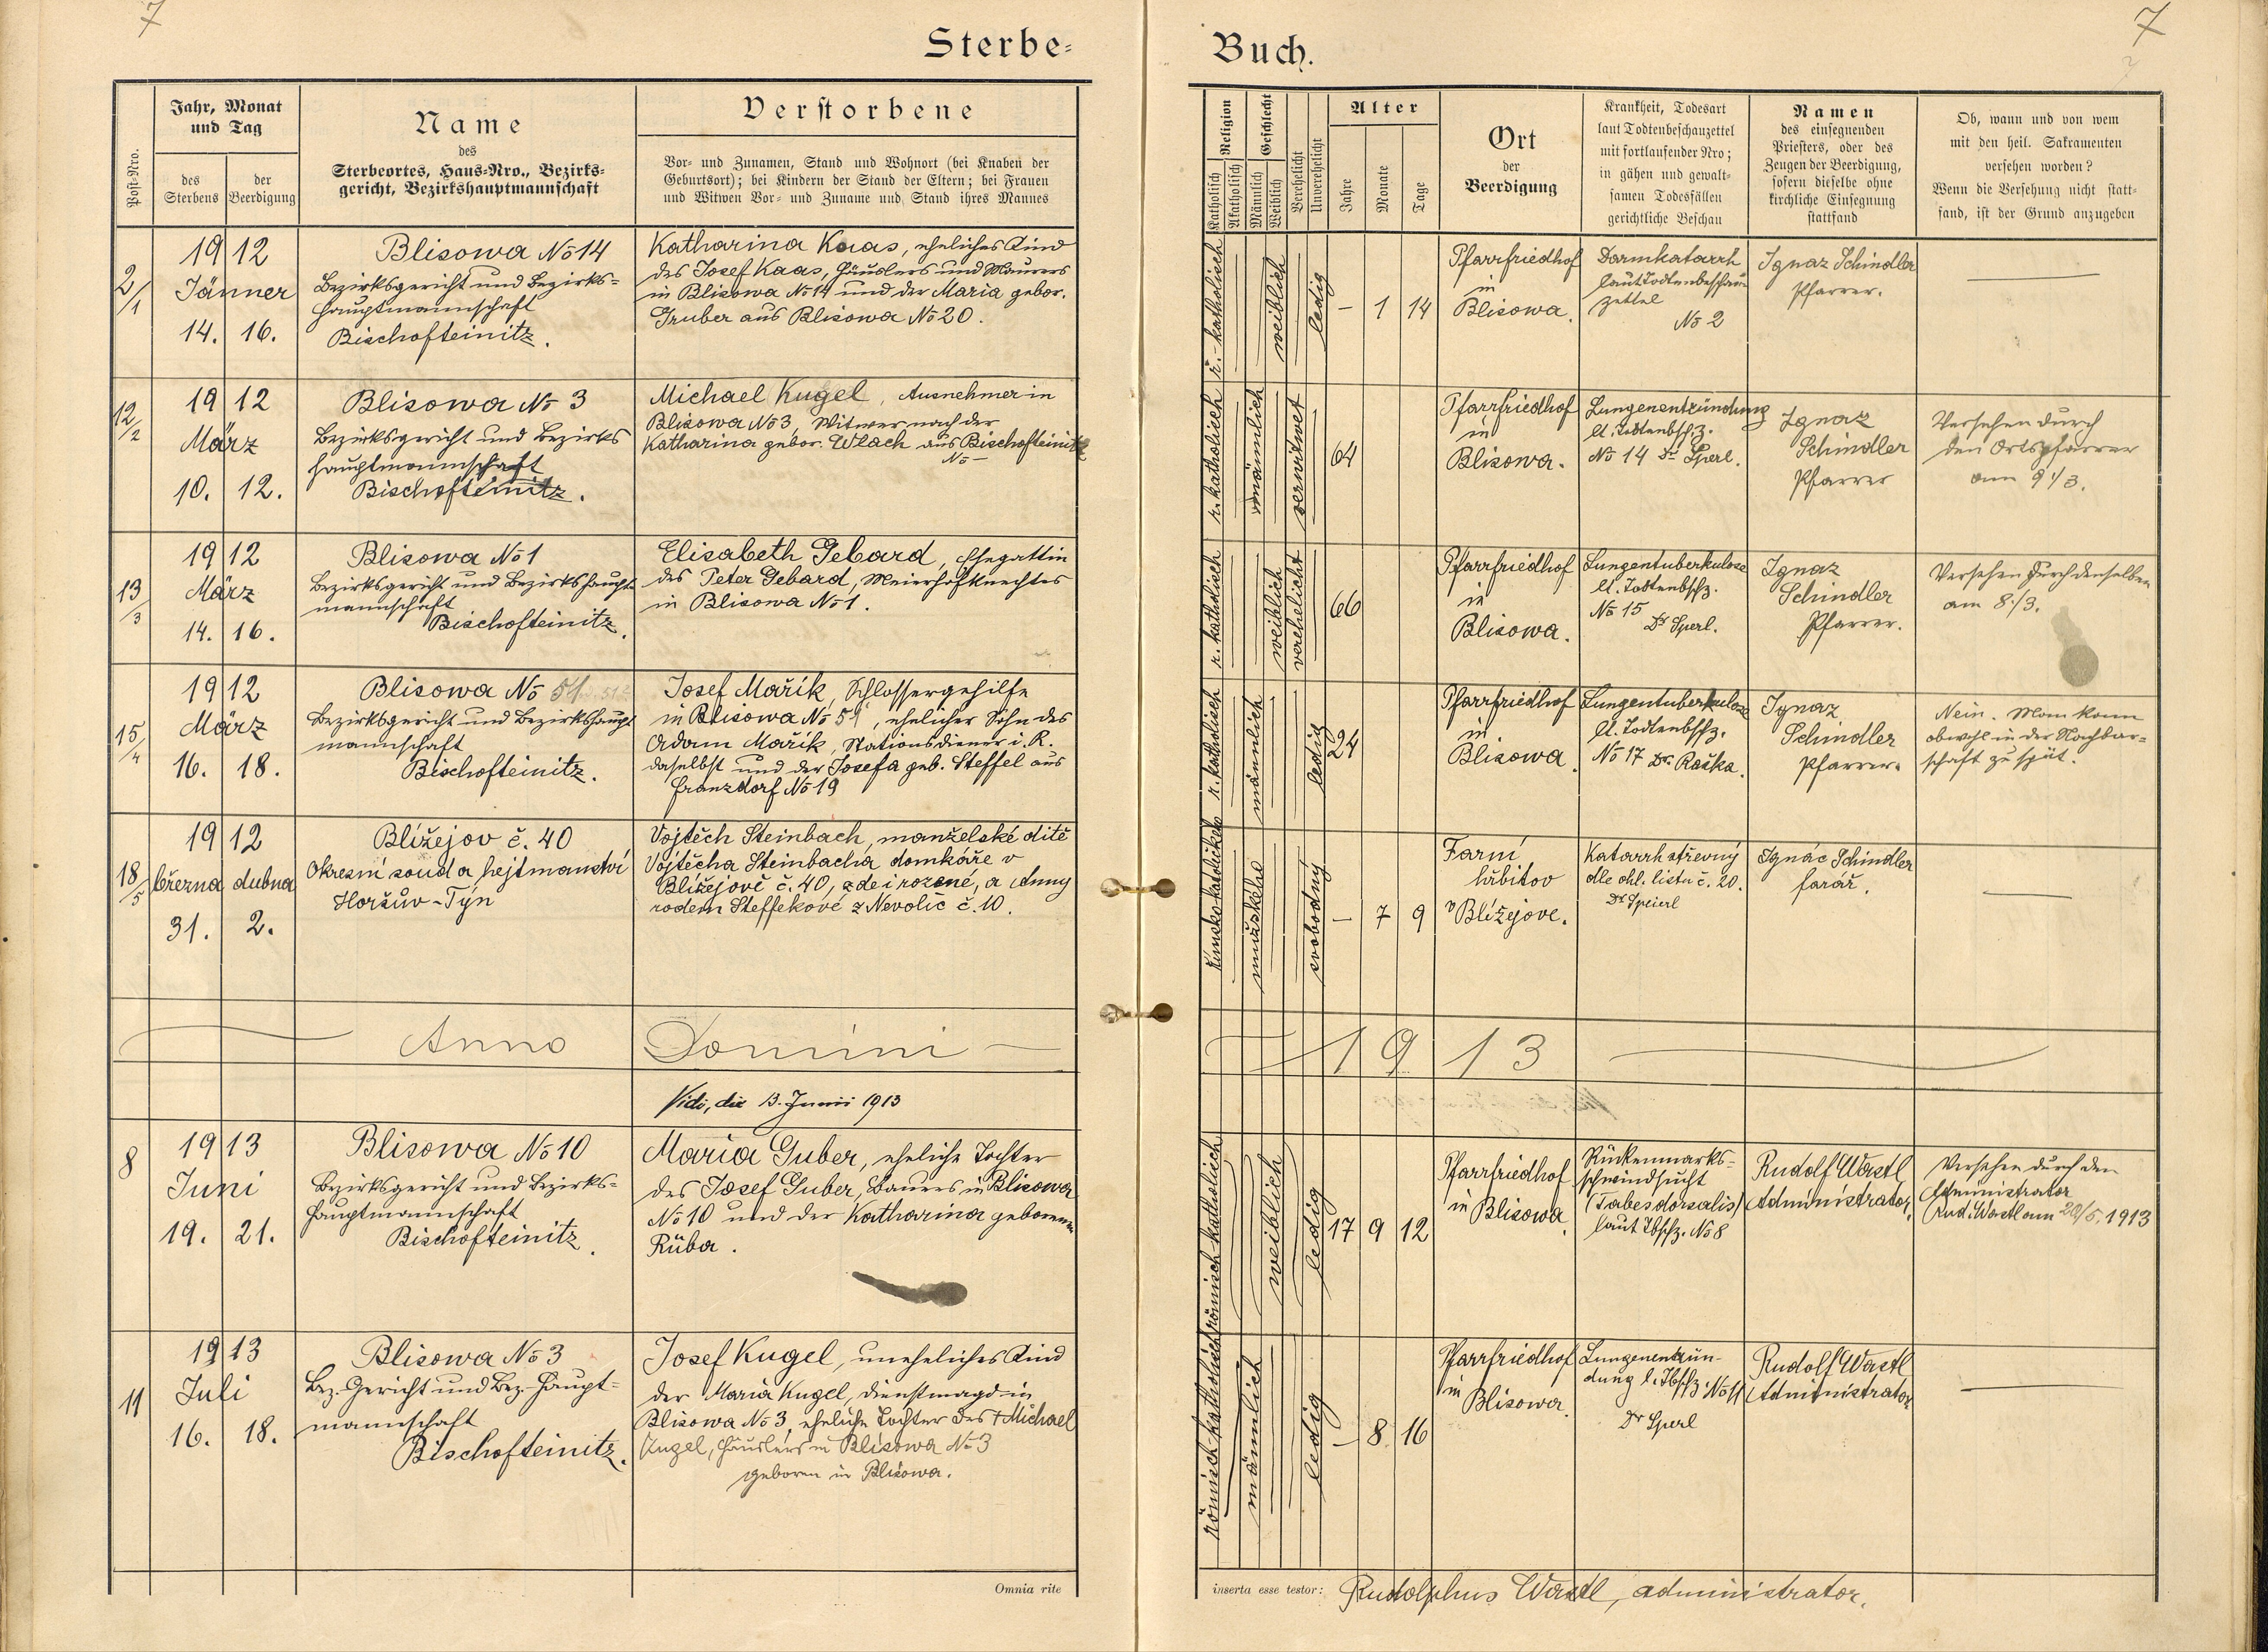 7
7
Sterbe-
Buch.
Post-Nro.
Jahr, Monat
und Tag
des
Sterbens
der
Beerdigung
Name
des
Sterbeortes, Haus-Nro., Bezirks-
gericht, Bezirkshauptmannschaft
Verstorbene
Vor- und Zunamen, Stand und Wohnort (bei Knaben der
Geburtsort); bei Kindern der Stand der Eltern; bei Frauen
und Witwen Vor- und Zuname und Stand ihres Mannes
Religion
Katholisch
Akatholisch
Geschlecht
Männlich
Weiblich
Verehelicht
Unverehelicht
Alter
Jahre
Monate
Tage
Ort
der
Beerdigung
Krankheit, Todesart
laut Todtenbeschauzettel
mit fortlaufender Nro;
in gähen und gewalt-
samen Todesfällen
gerichtliche Beschau
Namen
des einsegnenden
Priesters, oder des
Zeugen der Beerdigung,
sofern dieselbe ohne
kirchliche Einsegnung
stattfand
Ob, wann und von wem
mit den heil. Sakramenten
versehen worden?
Wenn die Versehung nicht statt-
fand, ist der Grund anzugeben
2/1
1912
Jänner
14. 16.
Blisowa No 14
Bezirksgericht und Bezirks-
hauptmannschaft
Bischofteinitz.
Katharina Kaas, eheliches Kind
des Josef Kaas, Häuslers und Maurers
in Blisowa No 14 und der Maria gebor.
Gruber aus Blisowa No 20.
r.-katholisch
weiblich
ledig
– 1 14
Pfarrfriedhof
in
Blisowa.
Darmkatarrh
laut Todtenbeschau-
zettel
No 2
Ignaz Schindler
Pfarrer.
—
12/2
1912
März
10. 12.
Blisowa No 3
Bezirksgericht und Bezirks
hauptmannschaft
Bischofteinitz.
Michael Kugel, Ausnehmer in
Blisowa No 3, Witwer nach der
Katharina gebor. Wlach aus Bischofteinitz
No –
r. katholisch
männlich
verwitwet
64
Pfarrfriedhof
in
Blisowa.
Lungenentzündung
lt. Todtenbschz.
No 14 Dr Sperl.
Ignaz
Schindler
Pfarrer
Versehen durch
den Ortspfarrer
am 9./3.
13/3
1912
März
14. 16.
Blisowa No 1
Bezirksgericht und Bezirkshaupt-
mannschaft
Bischofteinitz.
Elisabeth Gebard, Ehegattin
des Peter Gebard, Meierhofknechtes
in Blisowa No 1.
r. katholisch
weiblich
verehelicht
66
Pfarrfriedhof
in
Blisowa.
Lungentuberkulose
lt. Todtenbschz.
No 15
Dr Sperl.
Ignaz
Schindler
Pfarrer.
Versehen durch denselben
am 8./3.
15/4
1912
März
16. 18.
Blisowa No 51
Bezirksgericht und Bezirkshaupt
mannschaft
Bischofteinitz.
Josef Mařík, Schlossergehilfe
in Blisowa No 51, ehelicher Sohn des
Adam Mařík, Stationsdiener i. R.
daselbst und der Josefa geb. Steffel aus
Franzdorf No 19
r. katholisch
männlich
ledig
24
Pfarrfriedhof
in
Blisowa.
Lungentuberkulose
lt. Todtenbschz.
No 17 Dr. Raška.
Ignaz
Schindler
Pfarrer.
Nein. Man kam
obwohl in der Nachbar-
schaft zu spät.
18/5
1912
března dubna
31. 2.
Blížejov č. 40
Okresní soud a hejtmanství
Horšův-Týn
Vojtěch Steinbach, manželské dítě
Vojtěcha Steinbacha, domkáře v
Blížejově č. 40, zde i rozené, a Anny
rodem Steffekové z Nevolic č. 10.
římsko katolické
mužského
svobodný
– 7 9
Farní
hřbitov
v Blížejově.
Katarrh střevný
dle ohl. listu č. 20.
Dr Speierl
Ignác Schindler
farář.
—
Anno Domini 1913
Vidi, die 13. Junii 1913
8
1913
Juni
19. 21.
Blisowa No 10
Bezirksgericht und Bezirks-
hauptmannschaft
Bischofteinitz.
Maria Guber, eheliche Tochter
des Josef Guber, Bauers in Blisowa
No 10 und der Katharina geborenen
Rüba.
römisch katholisch
weiblich
ledig
17 9 12
Pfarrfriedhof
in Blisowa.
Rückenmarks-
schwindsucht
(Tabes dorsalis)
laut Tbschz. No 8
Rudolf Wastl
Administrator.
Versehen durch den
Administrator
Rud. Wastl am 20/5. 1913
11
1913
Juli
16. 18.
Blisowa No 3
Bez. Gericht und Bez. Haupt-
mannschaft
Bischofteinitz.
Josef Kugel, uneheliches Kind
der Maria Kugel, Dienstmagd in
Blisowa No 3, eheliche Tochter des † Michael
Kugel, Häuslers in Blisowa No 3
geboren in Blisowa.
römisch katholisch
männlich
ledig
– 8 16
Pfarrfriedhof
in
Blisowa.
Lungenentzün-
dung l. Tbschz. No 11
Dr Sperl
Rudolf Wastl
Administrator
—
Omnia rite
inserta esse testor: Rudolphus Wastl, administrator.